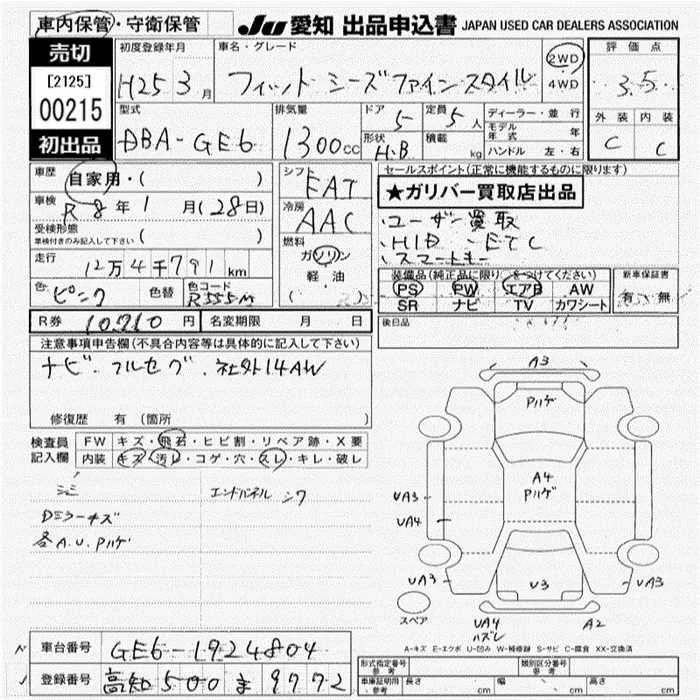 車内保管・守衛保管
JU 愛知 出品申込書 JAPAN USED CAR DEALERS ASSOCIATION
売切
[2125]
00215
初出品
初度登録年月
H25 3月
車名・グレード
フィット シーズファインスタイル
2WD
4WD
評価点
3.5
外装 内装
C C
型式
DBA-GE6
排気量
1300cc
ドア 5
形状 H.B
定員 5人
積載 kg
ディーラー・並行
モデル年式 年
ハンドル 左・右
車歴
自家用・( )
車検
R 8年 1月(28日)
受検形態
車検付きのみ記入して下さい ( )
走行
12万4千791km
色 ピンク 色替 色コード R555M
シフト
FAT
冷房
AAC
燃料
ガソリン
軽・油
( )
セールスポイント(正常に機能するものに限ります)
★ガリバー買取店出品
・ユーザー買取
・HID ・ETC
・スマートキー
装備品(純正品に限り○をつけてください)
PS PW エアB AW
SR ナビ TV カワシート
新車保証書
有・無
後日品
R券 10,210円 名変期限 月 日
注意事項申告欄(不具合内容等は具体的に記入して下さい)
ナビ・フルセグ、社外14AW
修復歴 有(箇所 )
検査員記入欄
FW キズ・飛石・ヒビ割・リペア跡・X要
内装 キズ・汚レ・コゲ・穴・スレ・キレ・破レ
シミ エンドパネル シワ
Dミラーキズ
各A.U.Pハゲ
A3
Pハゲ
A4
Pハゲ
UA3
UA4
UA3
U3
UA3
スペア
UA4
ハズレ
A2
A-キズ E-エクボ U-凹み W-補修跡 S-サビ C-腐食 XX-交換済
車台番号 GE6-1924804
登録番号 高知 500 ま 9772
形式指定番号 類別区分番号
車庫証明用参考 長さ cm 幅 cm 高さ cm